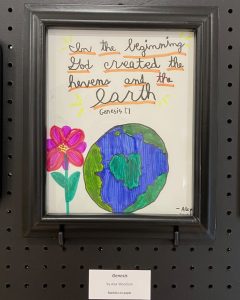 In the beginning
God created the
hevens and the
earth
Genesis 1:1
Genesis